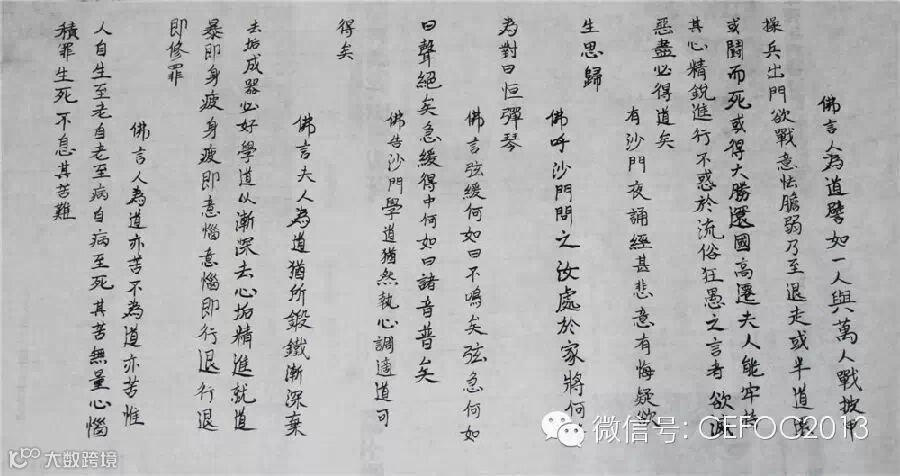 佛言人為道譬如一人與萬人戰披甲
操兵出門欲戰意怯膽弱乃至退走或半道還
或鬪而死或得大勝還國高遷夫人能牢持
其心精銳進行不惑於流俗狂愚之言者欲滅
惡盡必得道矣
有沙門夜誦經甚悲意有悔疑欲
生思歸
佛呼沙門問之汝處於家將何
為對曰恒彈琴
佛言弦緩何如曰不鳴矣弦急何如
曰聲絕矣急緩得中何如曰諸音普矣
佛告沙門學道猶然執心調適道可
得矣
佛言夫人為道猶所鍛鐵漸深棄
去垢成器必好學道以漸深去心垢精進就道
暴即身疲身疲即意惱意惱即行退行退
即修罪
佛言人為道亦苦不為道亦苦惟
人自生至老自老至病自病至死其苦無量心惱
積罪生死不息其苦難
微信号: CEFOC2013
大数跨境